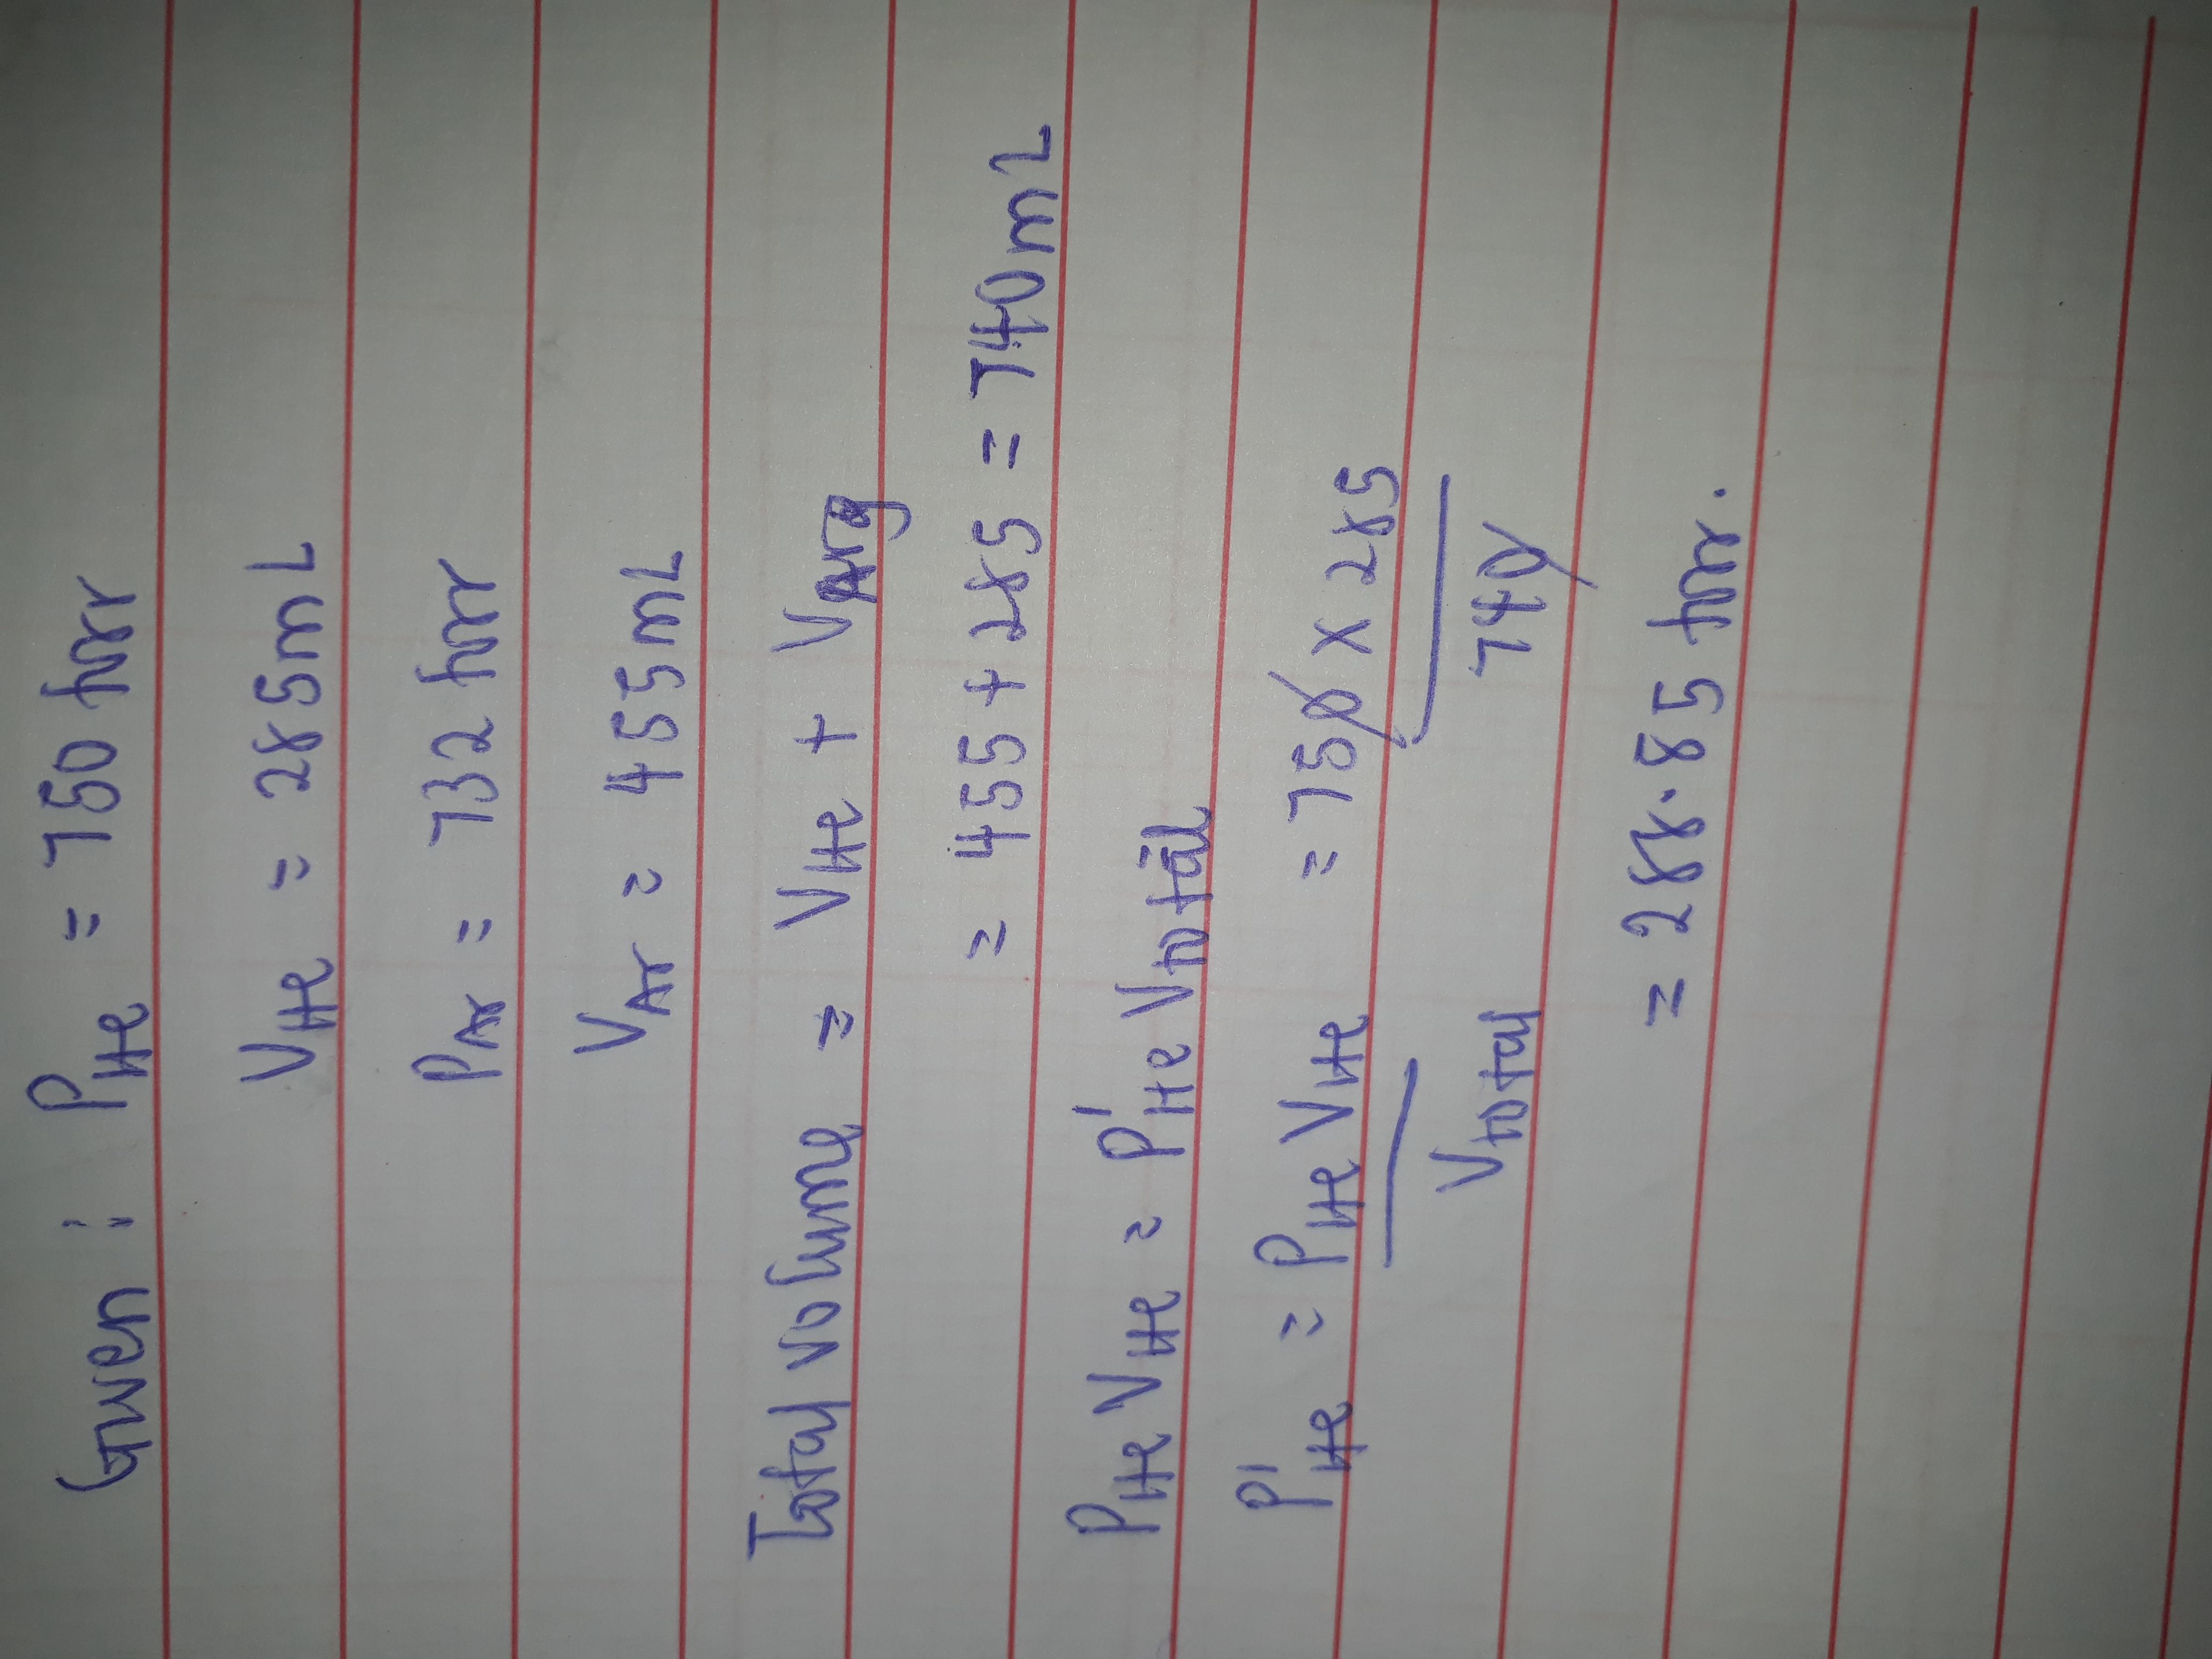 Given : PHe = 750 torr
VHe = 285mL
PAr = 732 torr
VAr = 455mL
Total volume = VHe + VArg
= 455 + 285 = 740mL
PHe VHe = P'He VTotal
P'He = PHe VHe / VTotal = 750 x 285 / 740
= 288.85 torr.